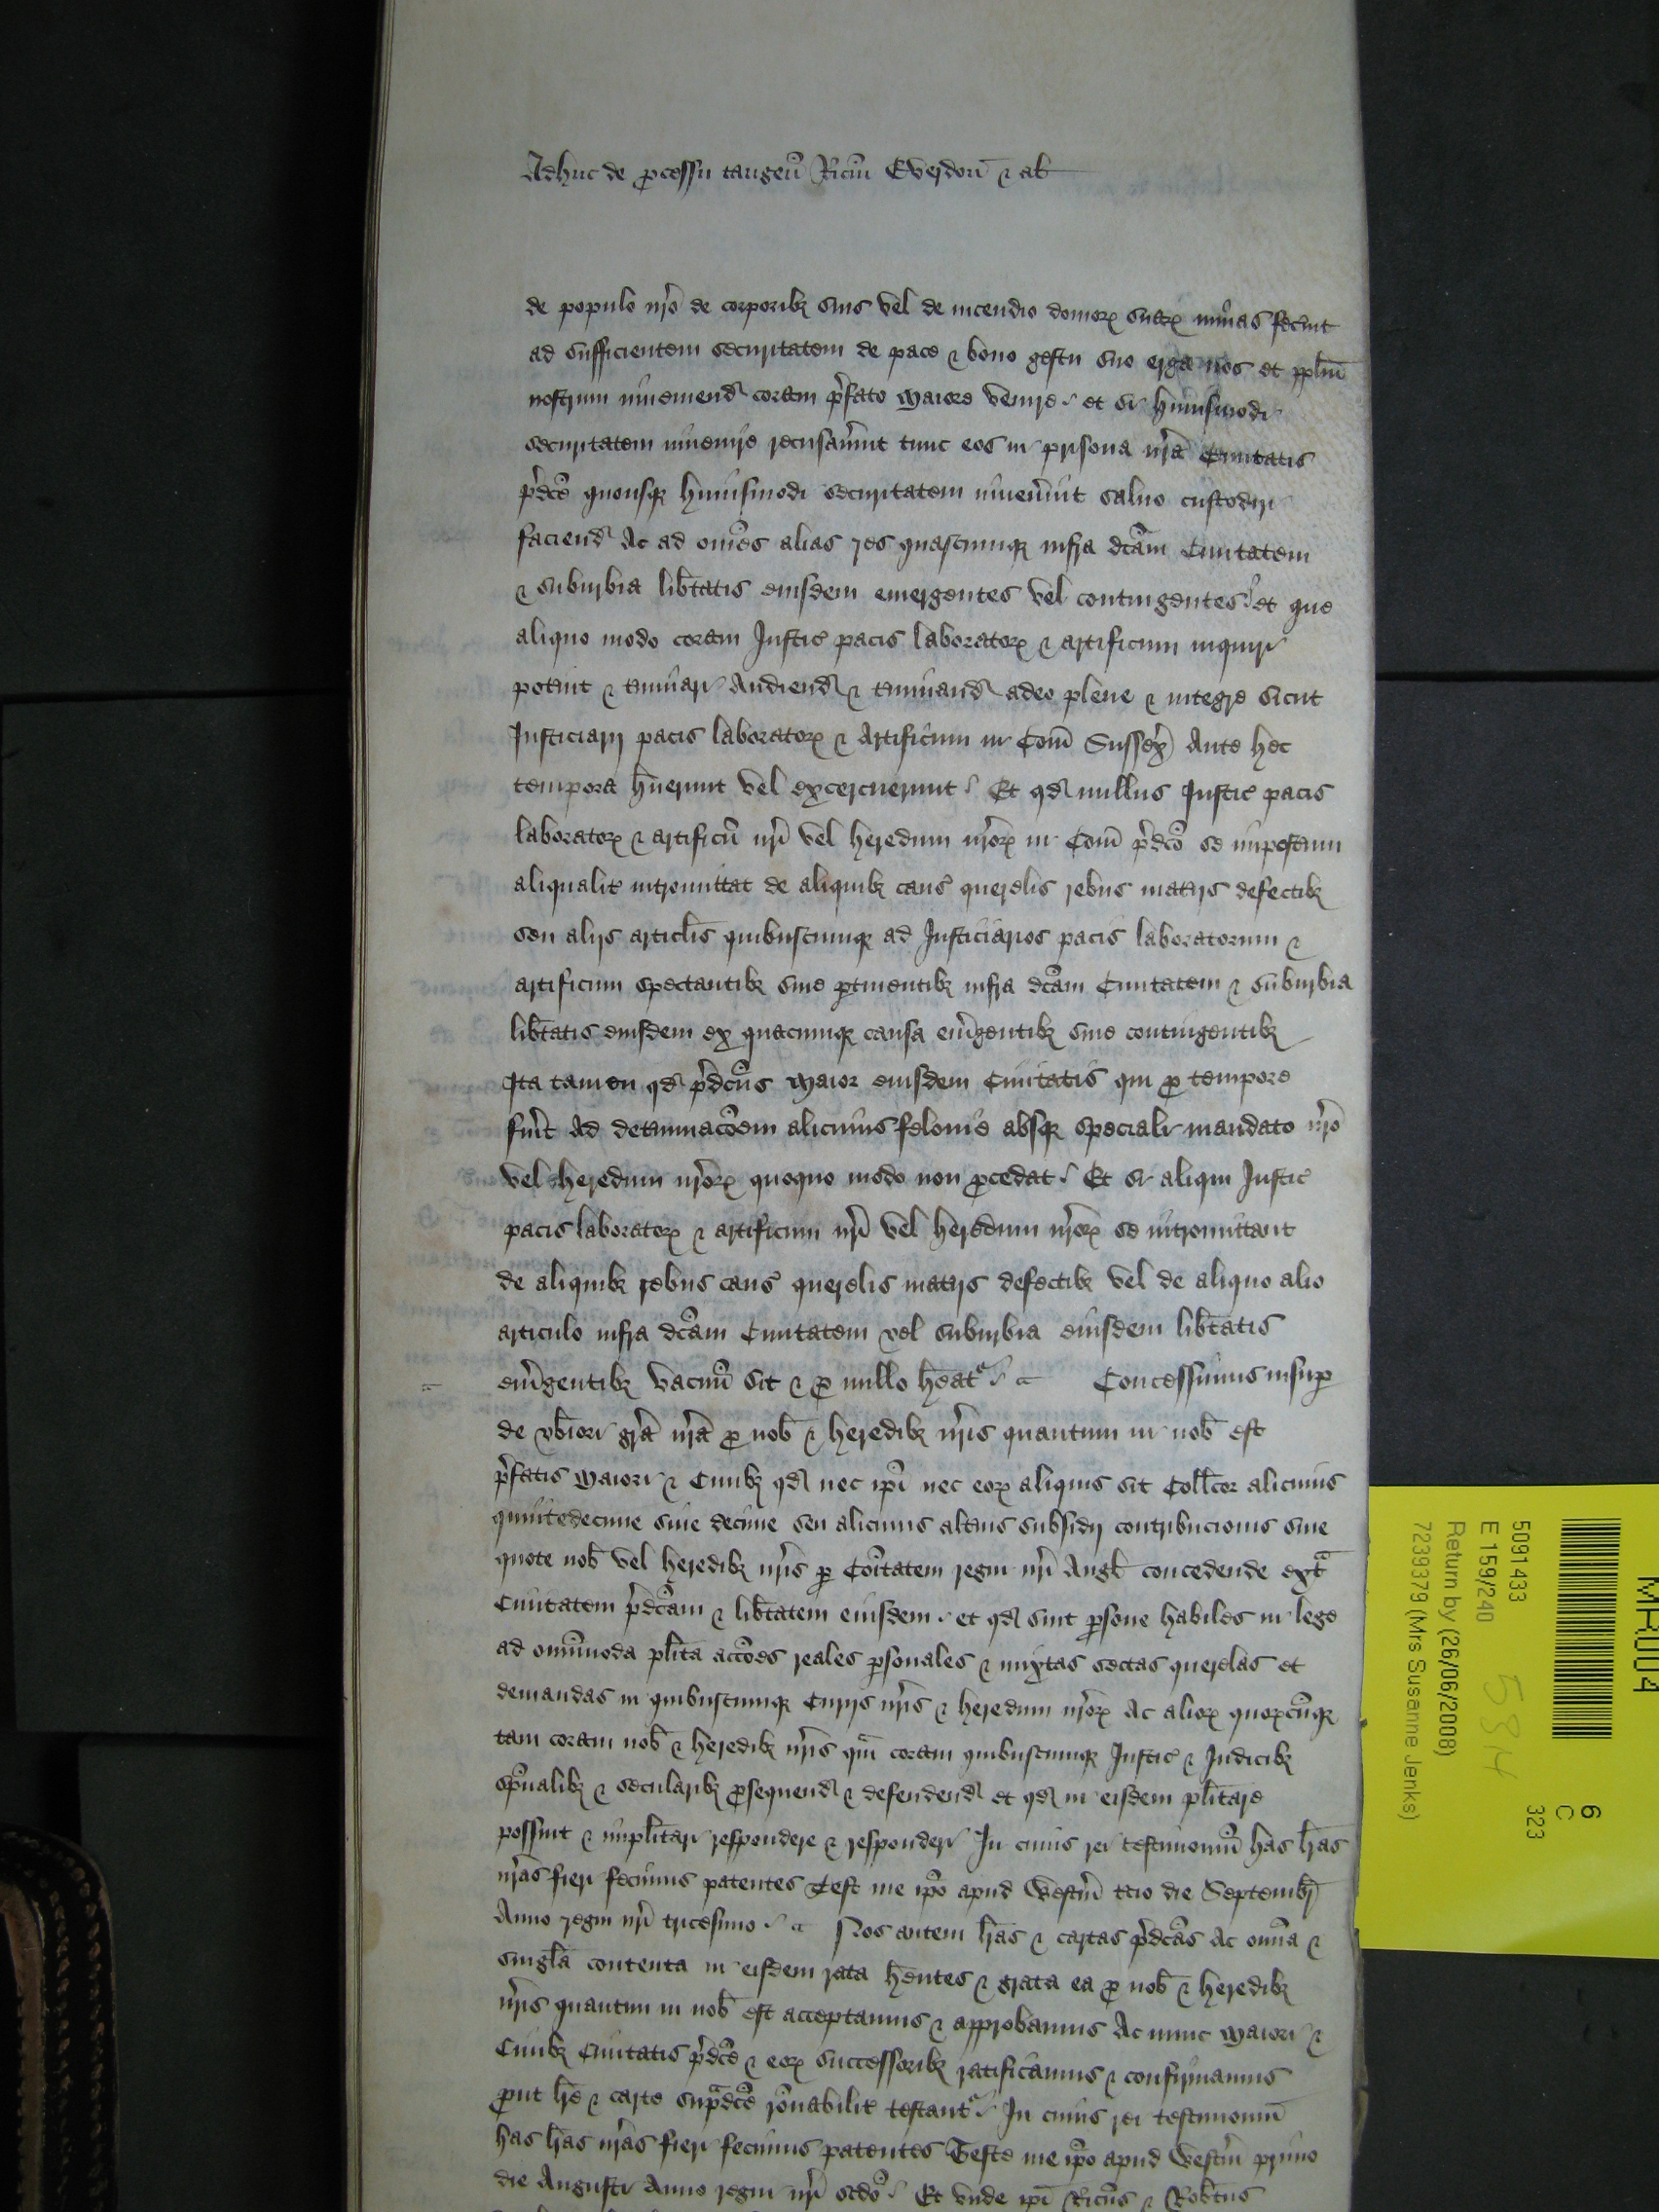 Adhuc de p̱cessu tangen̄ Ric̄m Everdon̄ ⁊ al̄
de populo nr̄o de corporibꝫ suis vel de incendio domorꝝ suarꝝ minas fec̄int
ad sufficientem securitatem de pace ⁊ bono gestu suo erga nos et pp̄lm̄
nostrum inueniend̄ coram p̄fato maiore venire et si huiusmodi
securitatem inuenire recusav̄int tunc eos in prisona nr̄a Ciuitatis
p̄dc̄e quousqꝫ huiusmodi securitatem inuen̄int saluo custodiri
faciend̄ Ac ad om̄es alias res quascumqꝫ infra dc̄am Ciuitatem
⁊ suburbia lib̄tatis eiusdem emergentes vel contingentes et que
aliquo modo coram Justic̄ pacis laboratorꝝ ⁊ artificum inquiri
pot̄int ⁊ t̄minari Audiend̄ ⁊ t̄minand̄ adeo plene ⁊ integre sicut
Justiciarij pacis laboratorꝝ ⁊ Artificum in Com̄ Sussex̄ Ante hec
tempora h̄uerunt vel excercuerunt Et qd̄ nullus Justic̄ pacis
laboratorꝝ ⁊ artificū nr̄i vel heredum nr̄orꝝ in Com̄ p̄dc̄o se impost̄um
aliqualit̄ intromittat de aliquibꝫ caus̄ querelis rebus mat̄ijs defectibꝫ
seu alijs articl̄is quibuscumqꝫ ad Justiciarios pacis laboratorum ⁊
artificum spectantibꝫ siue p̱tinentibꝫ infra dc̄am Ciuitatem ⁊ suburbia
lib̄tatis eiusdem ex quacumqꝫ causa em̄gentibꝫ siue contingentibꝫ
Ita tamen qd̄ p̄dc̄us maior eiusdem Ciuitatis qui p̱ tempore
fu̱it Ad det̄minac̄oem alicuius felonie absqꝫ speciali mandato nr̄o
vel heredum nr̄orꝝ quoquo modo non p̱cedat Et si aliqui Justic̄
pacis laboratorꝝ ⁊ artificum nr̄i vel heredum nr̄orꝝ se intromittant
de aliquibꝫ rebus caus̄ querelis mat̄ijs defectibꝫ vel de aliquo alio
articulo infra dc̄am Ciuitatem vel suburbia eiusdem lib̄tatis
em̄gentibꝫ vacuū sit ⁊ p̱ nullo h̄eat Concessimus insup̱
de vb̄iori gr̄a nr̄a p̱ nob̄ ⁊ heredibꝫ nr̄is quantum in nob̄ est
p̄fatis maiori ⁊ Ciuibꝫ qd̄ nec ip̄i nec eorꝝ aliquis sit Coll̄cor alicuius
quintedecime siue decime seu alicuius alt̄ius subsidij contribucionis siue
quote nob̄ vel heredibꝫ nr̄is p̱ Co͞itatem regni nr̄i Angl̄ concedende ext̄
Ciuitatem p̄dc̄am ⁊ lib̄tatem eiusdem et qd̄ sint p̱sone habiles in lege
ad om̄imoda pl̄ita acc̄oes reales p̱sonales ⁊ mixtas sectas querelas et
demandas in quibuscumqꝫ Curijs nr̄is ⁊ heredum nr̄orꝝ Ac aliorꝝ quorꝝcūqꝫ
tam coram nob̄ ⁊ heredibꝫ nr̄is qm̄ coram quibuscumqꝫ Justic̄ ⁊ Judicibꝫ
sp̄ualibꝫ ⁊ secularibꝫ p̱sequend̄ ⁊ defendend̄ et qd̄ in eisdem pl̄itare
possint ⁊ impl̄itari respondere ⁊ responderi In cuius rei testimoniū has l̄ras
nr̄as fieri fecimus patentes Test me ip̄o apud Westm̄ t̄cio die Septembr̄
Anno regni nr̄i tricesimo Nos autem l̄ras ⁊ cartas p̄dc̄as Ac om̄ia ⁊
singl̄a contenta in eisdem rata h̄entes ⁊ grata ea p̱ nob̄ ⁊ heredibꝫ
nr̄is quantum in nob̄ est acceptamus ⁊ approbamus Ac nunc maiori ⁊
Ciuibꝫ Ciuitatis p̄dc̄e ⁊ eorꝝ successoribꝫ ratificamus ⁊ confirmamus
p̱ut l̄re ⁊ carte sup̄dc̄e ro͞nabilit̄ testant̄ In cuius rei testimoniū
has l̄ras nr̄as fieri fecimus patentes Teste me ip̄o apud Westm̄ primo
die Augusti Anno regni nr̄i scdo̅ Et vnde ip̄i Ric̄us ⁊ Rob̄tus
MR004
6
C
323
5091433
E 159/240
5814
Return by (26/06/2008)
7239379 (Mrs Susanne Jenks)